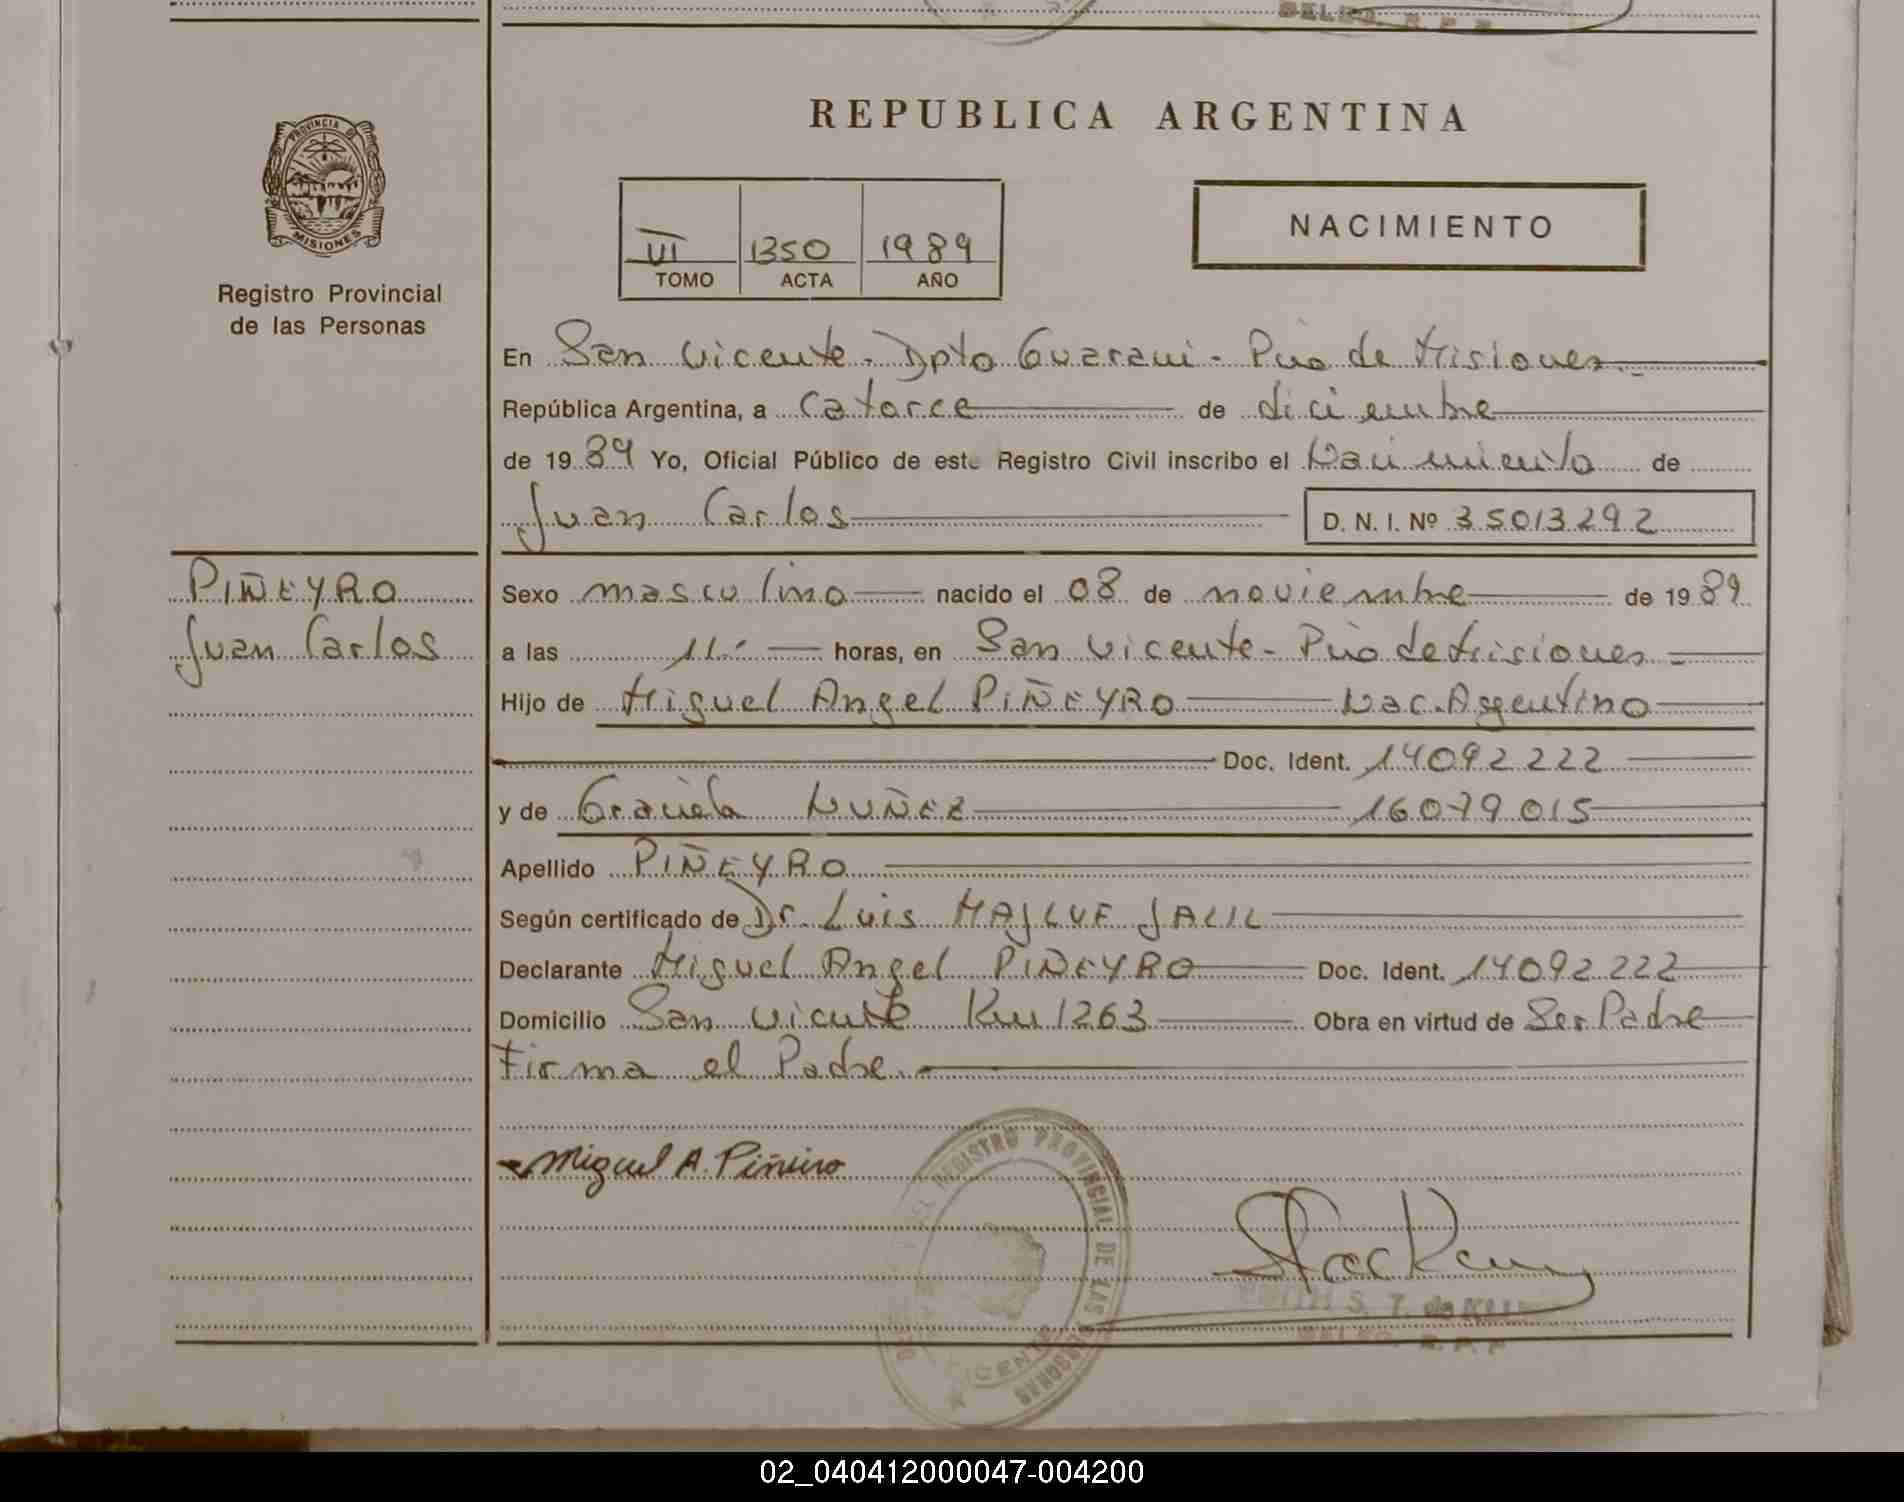 REPUBLICA ARGENTINA
PROVINCIA DE
MISIONES
Registro Provincial
de las Personas
VI 1350 1989
TOMO ACTA AÑO
NACIMIENTO
En San Vicente - Dpto Guarani - Pcia de Misiones
República Argentina, a catorce de diciembre
de 1989 Yo, Oficial Público de este Registro Civil inscribo el Nacimiento de
Juan Carlos D. N. I. Nº 35013292
PIÑEYRO
Juan Carlos
Sexo masculino nacido el 08 de noviembre de 1989
a las 11.- horas, en San Vicente - Pcia de Misiones
Hijo de Miguel Angel PIÑEYRO Nac. Argentino
Doc. Ident. 14092222
y de Graciela NUÑEZ 16079015
Apellido PIÑEYRO
Según certificado de Dr. Luis MAJLUF JALIL
Declarante Miguel Angel PIÑEYRO Doc. Ident. 14092222
Domicilio San Vicente Km 1263 Obra en virtud de Ser Padre
Firma el Padre.
Miguel A. Piñeiro
REGISTRO PROVINCIAL DE LAS PERSONAS
VICENTE
S. T. de
02_040412000047-004200